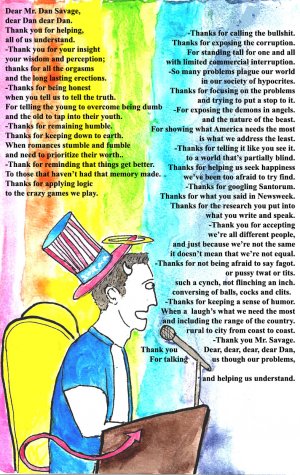 Dear Mr. Dan Savage,
dear Dan dear Dan.
Thank you for helping,
all of us understand.
-Thank you for your insight
your wisdom and perception;
thanks for all the orgasms
and the long lasting erections.
-Thanks for being honest
when you tell us to tell the truth.
For telling the young to overcome being dumb
and the old to tap into their youth.
-Thanks for remaining humble.
Thanks for keeping down to earth.
When romances stumble and fumble
and need to prioritize their worth..
-Thank for reminding that things get better.
To those that haven't had that memory made. .
Thanks for applying logic
to the crazy games we play.
-Thanks for calling the bullshit.
Thanks for exposing the corruption.
For standing tall for one and all
with limited commercial interruption.
-So many problems plague our world
in our society of hypocrites.
Thanks for focusing on the problems
and trying to put a stop to it.
-For exposing the demons in angels.
and the nature of the beast.
For showing what America needs the most
is what we address the least.
-Thanks for telling it like you see it.
to a world that's partially blind.
Thanks for helping us seek happiness
we've been too afraid to try find.
-Thanks for googling Santorum.
Thanks for what you said in Newsweek.
Thanks for the research you put into
what you write and speak.
-Thank you for accepting
we're all different people,
and just because we're not the same
it doesn't mean that we're not equal.
-Thanks for not being afraid to say fagot.
or pussy twat or tits.
such a cynch, not flinching an inch.
conversing of balls, cocks and clits.
-Thanks for keeping a sense of humor.
When a laugh's what we need the most
and including the range of the country.
rural to city from coast to coast.
-Thank you Mr. Savage.
Thank you Dear, dear, dear, dear Dan,
For talking us though our problems,
and helping us understand.